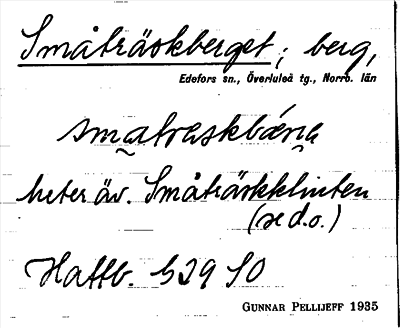 Småträskberget; berg,
Edefors sn., Överluleå tg., Norrb. län
smatraskbærga
heter äv. Småträskklinten
(se d.o.)
Häftb. 529 SO
GUNNAR PELLIJEFF 1935